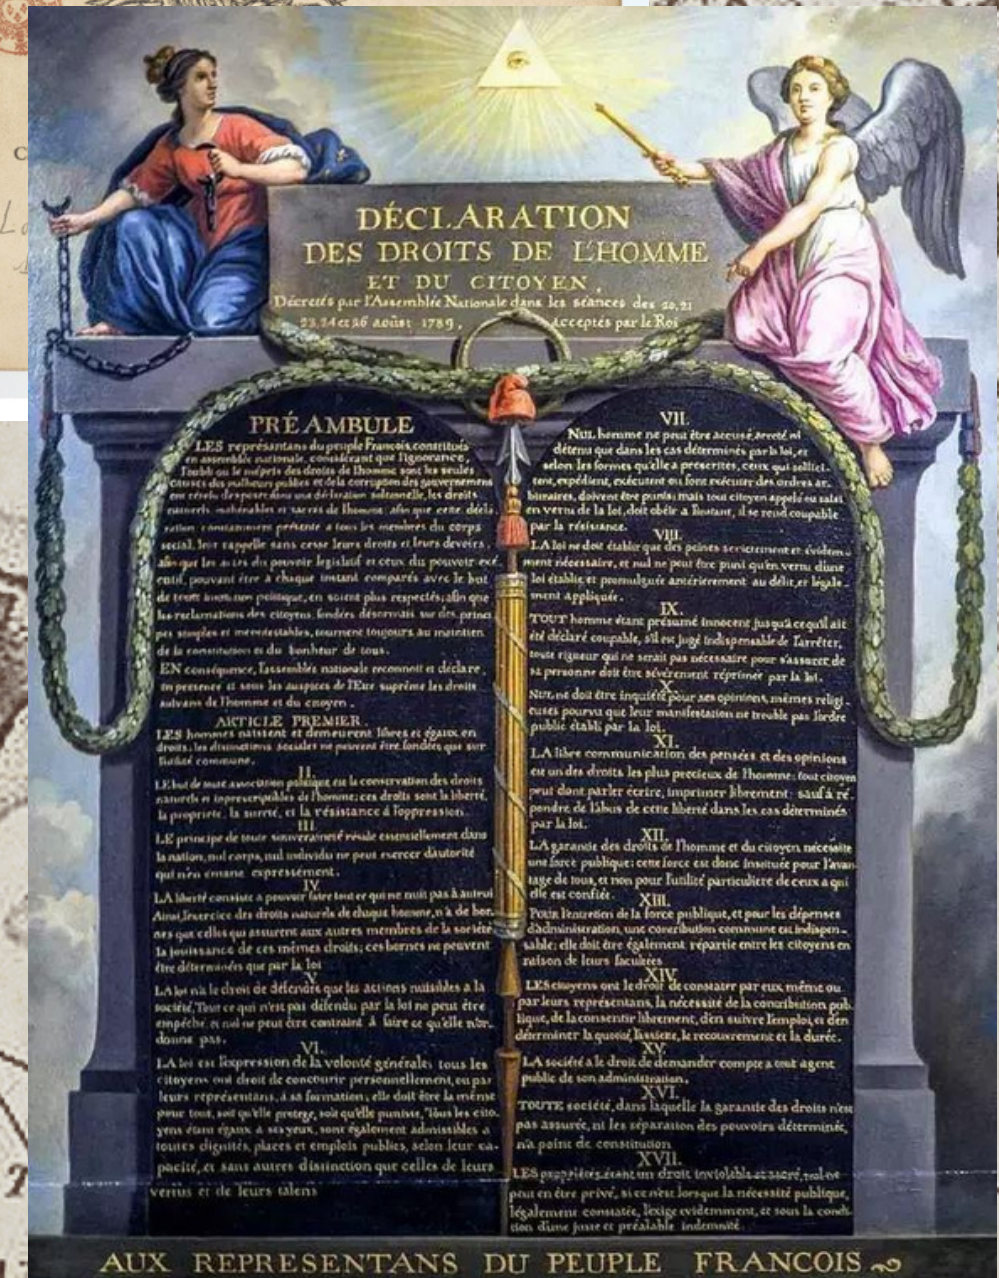 DÉCLARATION
DES DROITS DE L'HOMME
ET DU CITOYEN,
Décretés par l'Assemblée Nationale dans les séances des 20, 21
23, 24 et 26 aoûst 1789, acceptés par le Roi
PRÉAMBULE
LES représantans du peuple François, constitués
en assemblée nationale, considérant que l'ignorance,
l'oubli ou le mépris des droits de l'homme sont les seules
causes des malheurs publics et de la corruption des gouvernemens
ont résolu d'exposer dans une déclaration solemnelle, les droits
naturels, inaliénables et sacrés de l'homme: afin que cette décla
ration, constamment présente a tous les membres du corps
social, leur rappelle sans cesse leurs droits et leurs devoirs,
afin que les actes du pouvoir legislatif et ceux du pouvoir exé
cutif, pouvant être a chaque instant comparés avec le but
de toute institution politique, en soient plus respectés; afin que
les reclamations des citoyens, fondées désormais sur des princi
pes simples et incontestables, tournent toujours au maintien
de la constitution et du bonheur de tous.
EN conséquence, l'assemblée nationale reconnoit et déclare,
en presence et sous les auspices de l'Etre suprême les droits
suivans de l'homme et du citoyen.
ARTICLE PREMIER.
LES hommes naissent et demeurent libres et égaux en
droits, les distinctions sociales ne peuvent être fondées que sur
l'utilité commune.
II.
LE but de toute association politique est la conservation des droits
naturels et inprescriptibles de l'homme; ces droits sont la liberté,
la propriete, la sureté, et la résistance à l'oppression.
III.
LE principe de toute souveraineté réside essentiellement dans
la nation, nul corps, nul individu ne peut exercer d'autorité
qui n'en emane expressément.
IV.
LA liberté consiste a pouvoir faire tout ce qui ne nuit pas à autrui
Ainsi, l'exercice des droits naturels de chaque homme, n'a de bor-
nes que celles qui assurent aux autres membres de la société
la jouissance de ces mêmes droits; ces bornes ne peuvent
être déterminées que par la loi
V.
LA loi n'a le droit de défendre que les actions nuisibles a la
société. Tout ce qui n'est pas défendu par la loi ne peut être
empêché, et nul ne peut être contraint à faire ce qu'elle n'or-
donne pas.
VI.
LA loi est l'expression de la volonté générale; tous les
citoyens ont droit de concourir personnellement, ou par
leurs représentans, à sa formation; elle doit être la même
pour tous, soit qu'elle protege, soit qu'elle punisse. Tous les cito-
yens étant égaux a ses yeux, sont également admissibles a
toutes dignités, places et emplois publics, selon leur ca-
pacité, et sans autres distinction que celles de leurs
vertus et de leurs talens
VII.
NUL homme ne peut être accusé, arreté ni
détenu que dans les cas déterminés par la loi, et
selon les formes qu'elle a prescrites, ceux qui sollici-
tent, expédient, exécutent ou font exécuter des ordres ar-
bitraires, doivent être punis; mais tout citoyen appelé ou saisi
en vertu de la loi, doit obéir a l'instant, il se rend coupable
par la résistance.
VIII.
LA loi ne doit établir que des peines strictement et évidem-
ment nécessaire, et nul ne peut être puni qu'en vertu d'une
loi établie et promulguée antérierement au délit, et légale-
ment appliquée.
IX.
TOUT homme étant présumé innocent jusqu'a ce qu'il ait
été déclaré coupable, s'il est jugé indispensable de l'arrêter,
toute rigueur qui ne serait pas nécessaire pour s'assurer de
sa personne doit être sévèrement réprimée par la loi.
X.
NUL ne doit être inquiété pour ses opinions, mêmes religi-
euses pourvu que leur manifestation ne trouble pas l'ordre
public établi par la loi.
XI.
LA libre communication des pensées et des opinions
est un des droits les plus precieux de l'homme; tout citoyen
peut donc parler écrire, imprimer librement: sauf à ré-
pondre de l'abus de cette liberté dans les cas déterminés
par la loi.
XII.
LA garantie des droits de l'homme et du citoyen nécessite
une force publique; cette force est donc instituée pour l'avan-
tage de tous, et non pour l'utilité particuliere de ceux a qui
elle est confiée.
XIII.
POUR l'entretien de la force publique, et pour les dépenses
d'administration, une contribution commune est indispen-
sable; elle doit être également répartie entre les citoyens en
raison de leurs facultées
XIV.
LES citoyens ont le droit de constater par eux même ou
par leurs représentans, la nécessité de la contribution pub-
lique, de la consentir librement, d'en suivre l'emploi, et d'en
déterminer la quotité, l'assiete, le recouvrement et la durée.
XV.
LA société a le droit de demander compte a tout agent
public de son administration.
XVI.
TOUTE société, dans laquelle la garantie des droits n'est
pas assurée, ni les séparation des pouvoirs déterminée,
n'a point de constitution
XVII.
LES propriétés étant un droit inviolable et sacré, nul ne
peut en être privé, si ce n'est lorsque la nécessité publique,
légalement constatée, l'exige evidemment, et sous la condi-
tion d'une juste et préalable indemnité.
AUX REPRESENTANS DU PEUPLE FRANCOIS